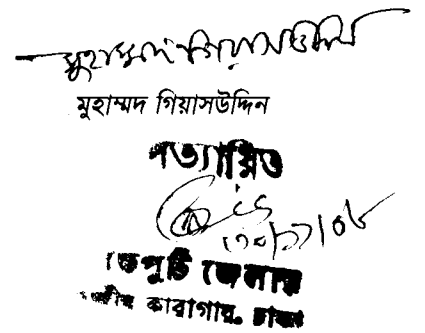 মুহাম্মদ গিয়াসউদ্দিন
মুহাম্মদ গিয়াসউদ্দিন
সত্যায়িত
ডেপুটি জেলার
কারাগার, ঢাকা